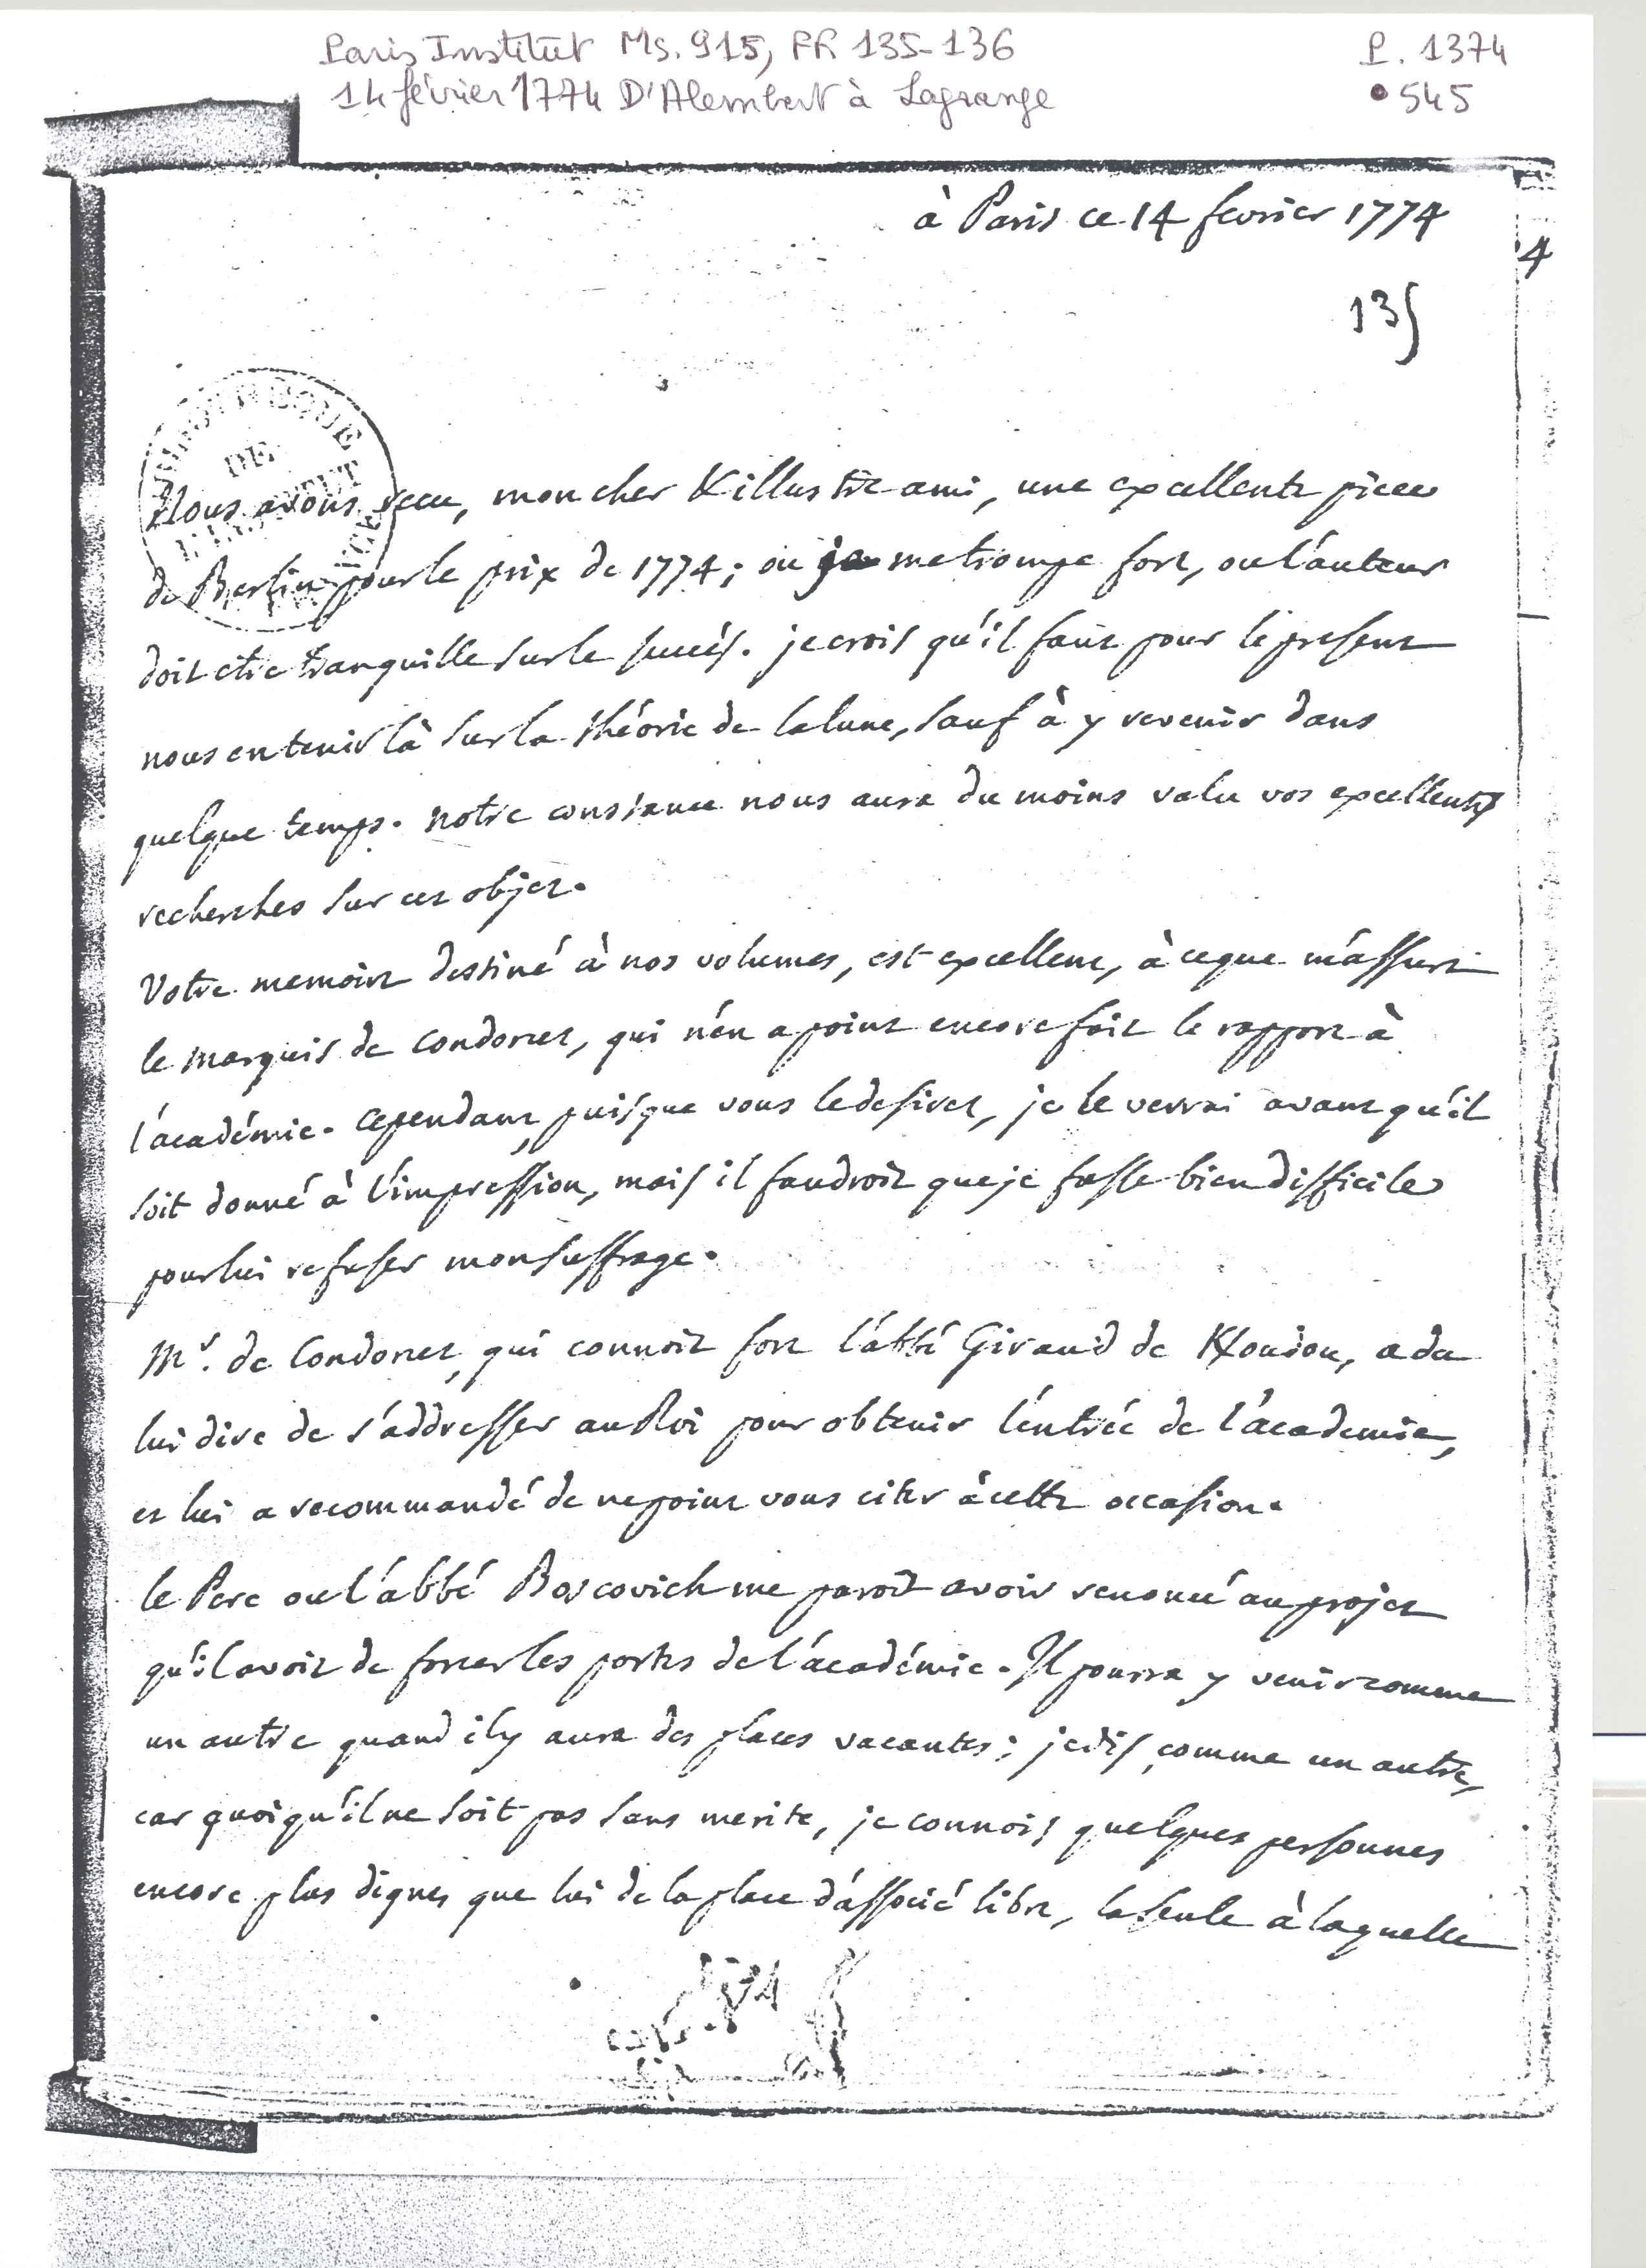 Paris Institut Ms. 915, FF 135-136
P. 1374
14 février 1774 D'Alembert à Lagrange
• 545
à Paris ce 14 fevrier 1774
4
135
BIBLIOTHEQUE
DE
L'INSTITUT
Nous avons recu, mon cher & illustre ami, une excellente piece
de Berlin pour le prix de 1774; ou je me trompe fort, ou l'auteur
doit etre tranquille sur le succès. je crois qu'il faut pour le present
nous en tenir là sur la théorie de la lune, sauf à y revenir dans
quelque temps. notre constance nous aura du moins valu vos excellentes
recherches sur cet objet.
Votre memoire destiné à nos volumes, est excellent, à ce que m'assure
le marquis de Condorcet, qui n'en a point encore fait le rapport à
l'académie. cependant, puisque vous le desirez, je le verrai avant qu'il
soit donné à l'impression, mais il faudroit que je fusse bien difficile
pour lui refuser mon suffrage.
Mr. de Condorcet, qui connoit fort l'abbé Giraud de Koudou, a du
lui dire de s'addresser au Roi pour obtenir l'entrée de l'academie,
et lui a recommandé de ne point vous citer à cette occasion.
le Pere ou l'abbé Boscovich me paroit avoir renoncé au projet
qu'il avoit de forcer les portes de l'académie. Il pourra y venir comme
un autre quand il y aura des places vacantes; je dis, comme un autre,
car quoiqu'il ne soit pas sans merite, je connois quelques personnes
encore plus dignes que lui de la place d'associé libre, la seule à laquelle